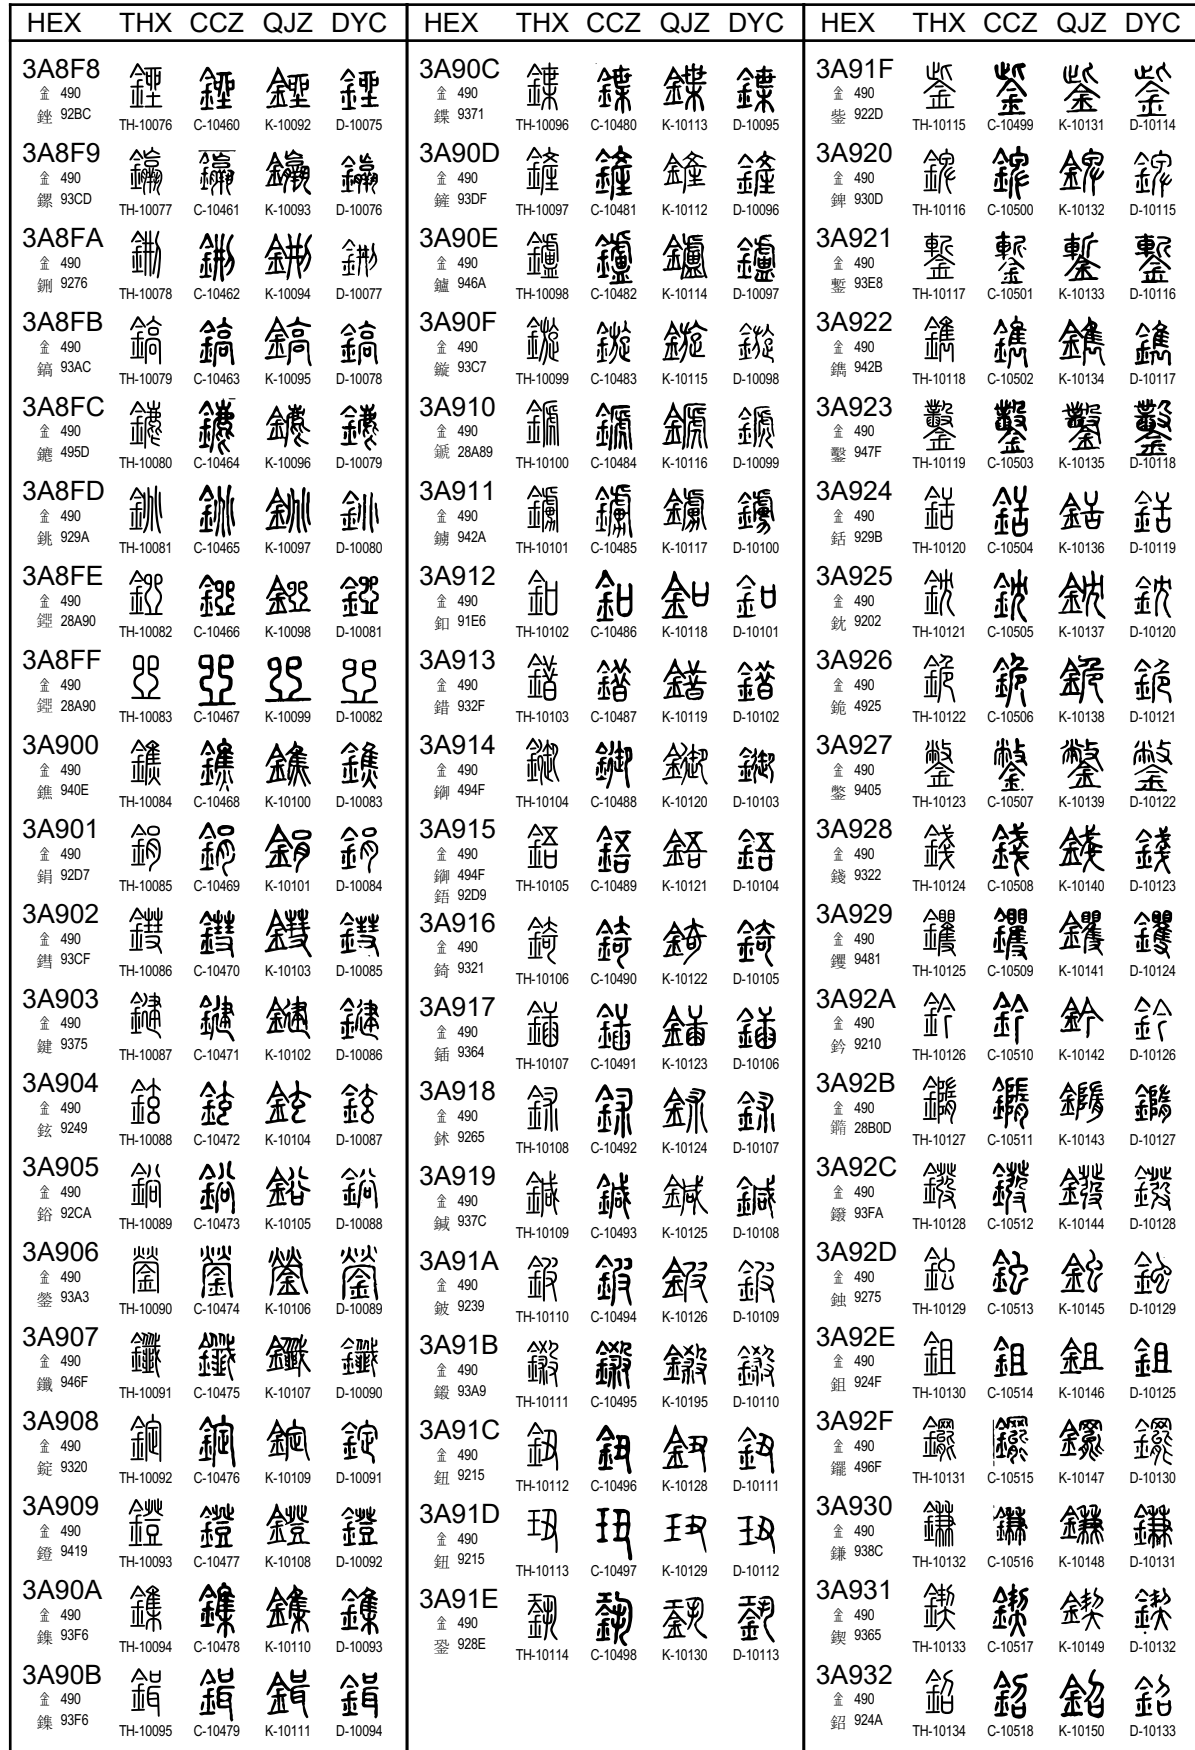 HEX THX CCZ QJZ DYC
3A8F8
金 490
銼 92BC TH-10076 C-10460 K-10092 D-10075
3A8F9
金 490
鏍 93CD TH-10077 C-10461 K-10093 D-10076
3A8FA
金 490
鉶 9276 TH-10078 C-10462 K-10094 D-10077
3A8FB
金 490
鎬 93AC TH-10079 C-10463 K-10095 D-10078
3A8FC
金 490
䥝 495D TH-10080 C-10464 K-10096 D-10079
3A8FD
金 490
銚 929A TH-10081 C-10465 K-10097 D-10080
3A8FE
金 490
𨪐 28A90 TH-10082 C-10466 K-10098 D-10081
3A8FF
金 490
𨪐 28A90 TH-10083 C-10467 K-10099 D-10082
3A900
金 490
鐎 940E TH-10084 C-10468 K-10100 D-10083
3A901
金 490
鋗 92D7 TH-10085 C-10469 K-10101 D-10084
3A902
金 490
鏏 93CF TH-10086 C-10470 K-10103 D-10085
3A903
金 490
鍵 9375 TH-10087 C-10471 K-10102 D-10086
3A904
金 490
鉉 9249 TH-10088 C-10472 K-10104 D-10087
3A905
金 490
鋊 92CA TH-10089 C-10473 K-10105 D-10088
3A906
金 490
鎣 93A3 TH-10090 C-10474 K-10106 D-10089
3A907
金 490
鑯 946F TH-10091 C-10475 K-10107 D-10090
3A908
金 490
錠 9320 TH-10092 C-10476 K-10109 D-10091
3A909
金 490
鐙 9419 TH-10093 C-10477 K-10108 D-10092
3A90A
金 490
鏶 93F6 TH-10094 C-10478 K-10110 D-10093
3A90B
金 490
鏶 93F6 TH-10095 C-10479 K-10111 D-10094
HEX THX CCZ QJZ DYC
3A90C
金 490
鍱 9371 TH-10096 C-10480 K-10113 D-10095
3A90D
金 490
鏟 93DF TH-10097 C-10481 K-10112 D-10096
3A90E
金 490
鑪 946A TH-10098 C-10482 K-10114 D-10097
3A90F
金 490
鏇 93C7 TH-10099 C-10483 K-10115 D-10098
3A910
金 490
𨪉 28A89 TH-10100 C-10484 K-10116 D-10099
3A911
金 490
鐪 942A TH-10101 C-10485 K-10117 D-10100
3A912
金 490
釦 91E6 TH-10102 C-10486 K-10118 D-10101
3A913
金 490
錯 932F TH-10103 C-10487 K-10119 D-10102
3A914
金 490
䥏 494F TH-10104 C-10488 K-10120 D-10103
3A915
金 490
䥏 494F TH-10105 C-10489 K-10121 D-10104
鋙 92D9
3A916
金 490
錡 9321 TH-10106 C-10490 K-10122 D-10105
3A917
金 490
鍤 9364 TH-10107 C-10491 K-10123 D-10106
3A918
金 490
鉥 9265 TH-10108 C-10492 K-10124 D-10107
3A919
金 490
鍼 937C TH-10109 C-10493 K-10125 D-10108
3A91A
金 490
鈹 9239 TH-10110 C-10494 K-10126 D-10109
3A91B
金 490
鎩 93A9 TH-10111 C-10495 K-10195 D-10110
3A91C
金 490
鈕 9215 TH-10112 C-10496 K-10128 D-10111
3A91D
金 490
鈕 9215 TH-10113 C-10497 K-10129 D-10112
3A91E
金 490
銎 928E TH-10114 C-10498 K-10130 D-10113
HEX THX CCZ QJZ DYC
3A91F
金 490
鈭 922D TH-10115 C-10499 K-10131 D-10114
3A920
金 490
錍 930D TH-10116 C-10500 K-10132 D-10115
3A921
金 490
鏨 93E8 TH-10117 C-10501 K-10133 D-10116
3A922
金 490
鐫 942B TH-10118 C-10502 K-10134 D-10117
3A923
金 490
鑿 947F TH-10119 C-10503 K-10135 D-10118
3A924
金 490
銛 929B TH-10120 C-10504 K-10136 D-10119
3A925
金 490
鈂 9202 TH-10121 C-10505 K-10137 D-10120
3A926
金 490
䤥 4925 TH-10122 C-10506 K-10138 D-10121
3A927
金 490
鐅 9405 TH-10123 C-10507 K-10139 D-10122
3A928
金 490
錢 9322 TH-10124 C-10508 K-10140 D-10123
3A929
金 490
钁 9481 TH-10125 C-10509 K-10141 D-10124
3A92A
金 490
鈐 9210 TH-10126 C-10510 K-10142 D-10126
3A92B
金 490
𨬍 28B0D TH-10127 C-10511 K-10143 D-10127
3A92C
金 490
鏺 93FA TH-10128 C-10512 K-10144 D-10128
3A92D
金 490
鉵 9275 TH-10129 C-10513 K-10145 D-10129
3A92E
金 490
鉏 924F TH-10130 C-10514 K-10146 D-10125
3A92F
金 490
䥯 496F TH-10131 C-10515 K-10147 D-10130
3A930
金 490
鎌 938C TH-10132 C-10516 K-10148 D-10131
3A931
金 490
鍥 9365 TH-10133 C-10517 K-10149 D-10132
3A932
金 490
鉊 924A TH-10134 C-10518 K-10150 D-10133